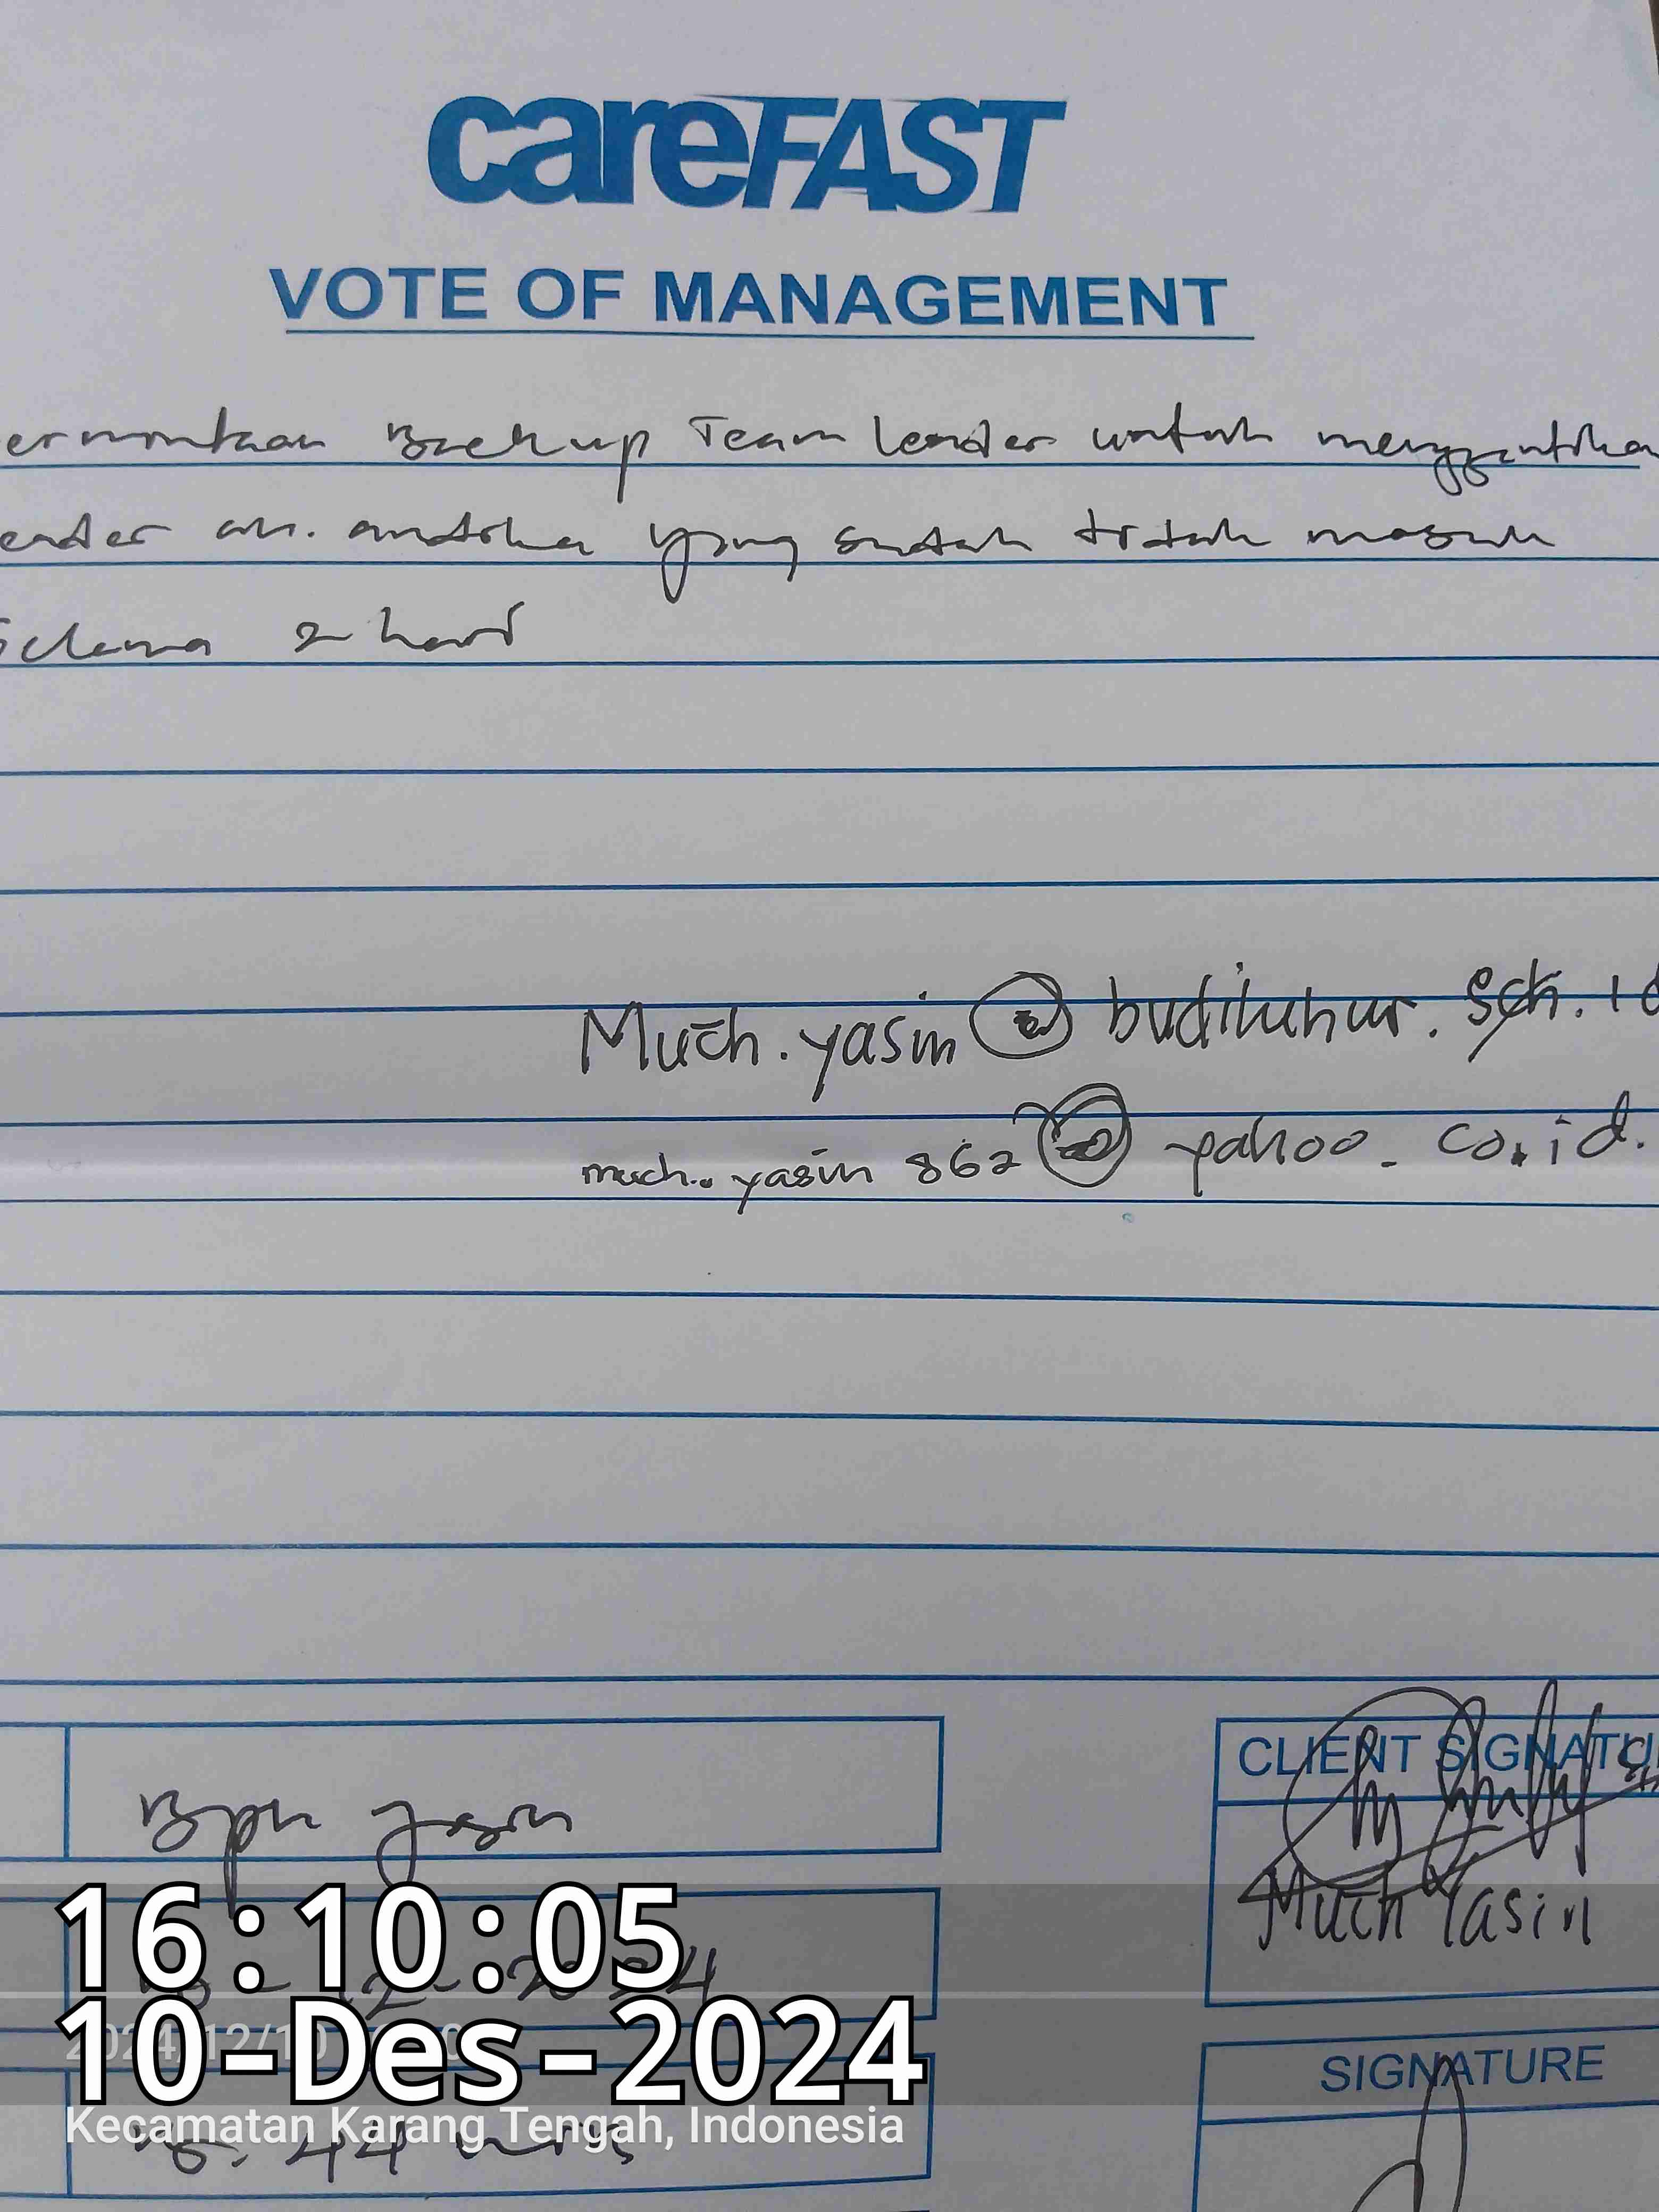 careFAST
VOTE OF MANAGEMENT
ermintaan Backup Team leader untuk menggantika
eader an. andika yang sudah tidak masuk
Selama 2 hari
Much.yasin@budiluhur.sch.id
much.yasin 862@yahoo.co.id.
Bpk Yasin
CLIENT SIGNATU
Much Yasin
16:10:05
10-Des-2024
SIGNATURE
Kecamatan Karang Tengah, Indonesia